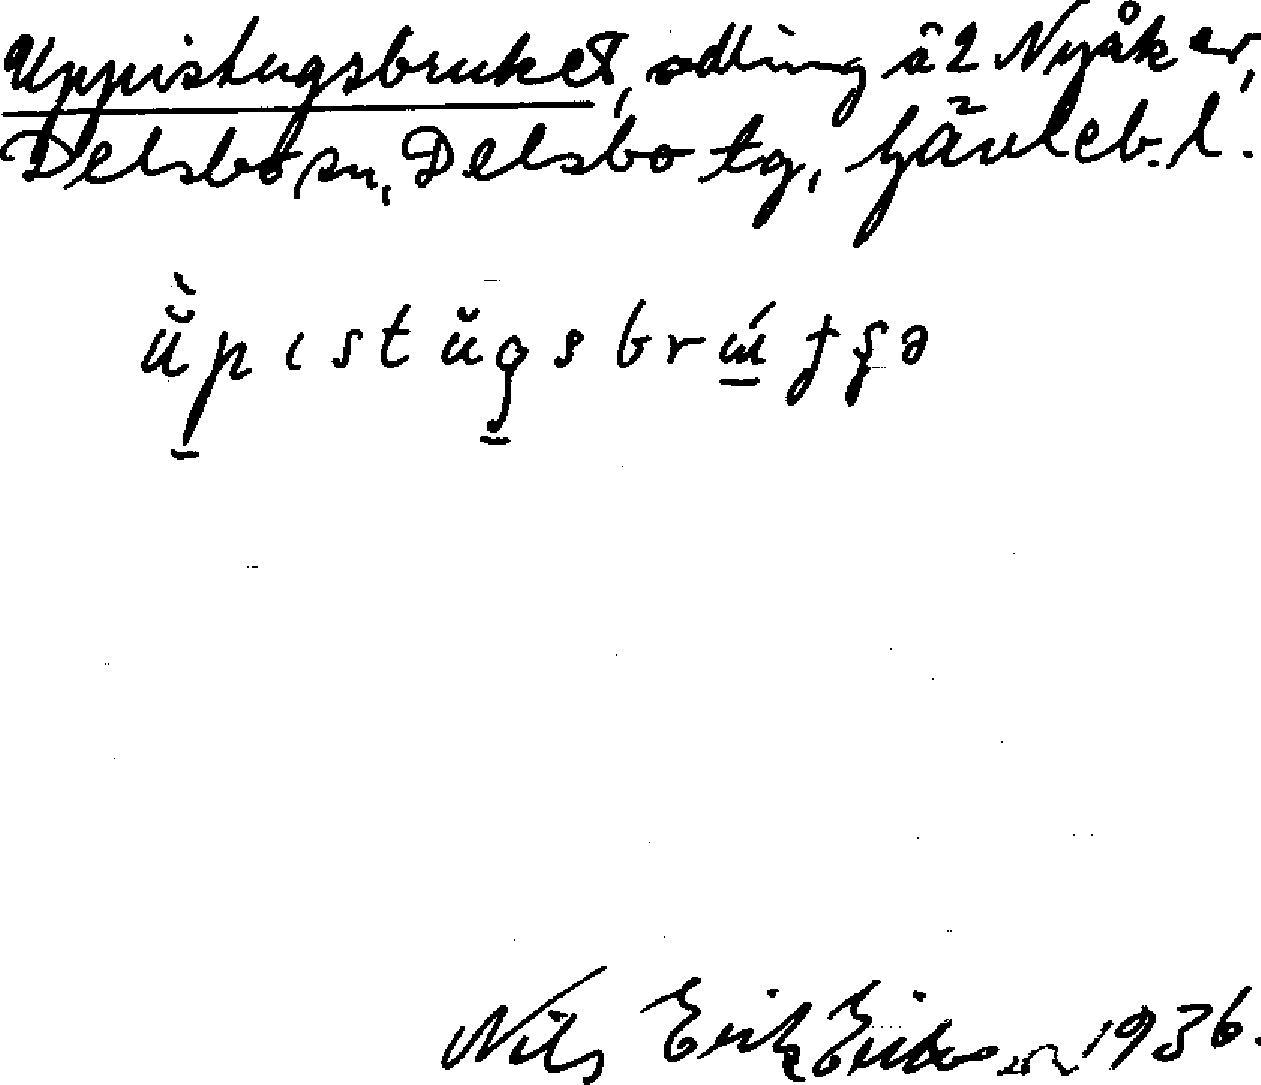 Uppistugsbruket, odling å 2 Nyåker,
Delsbo sn, Delsbo tg, Gävleb. l.
Nils Erik Eriksson 1936.